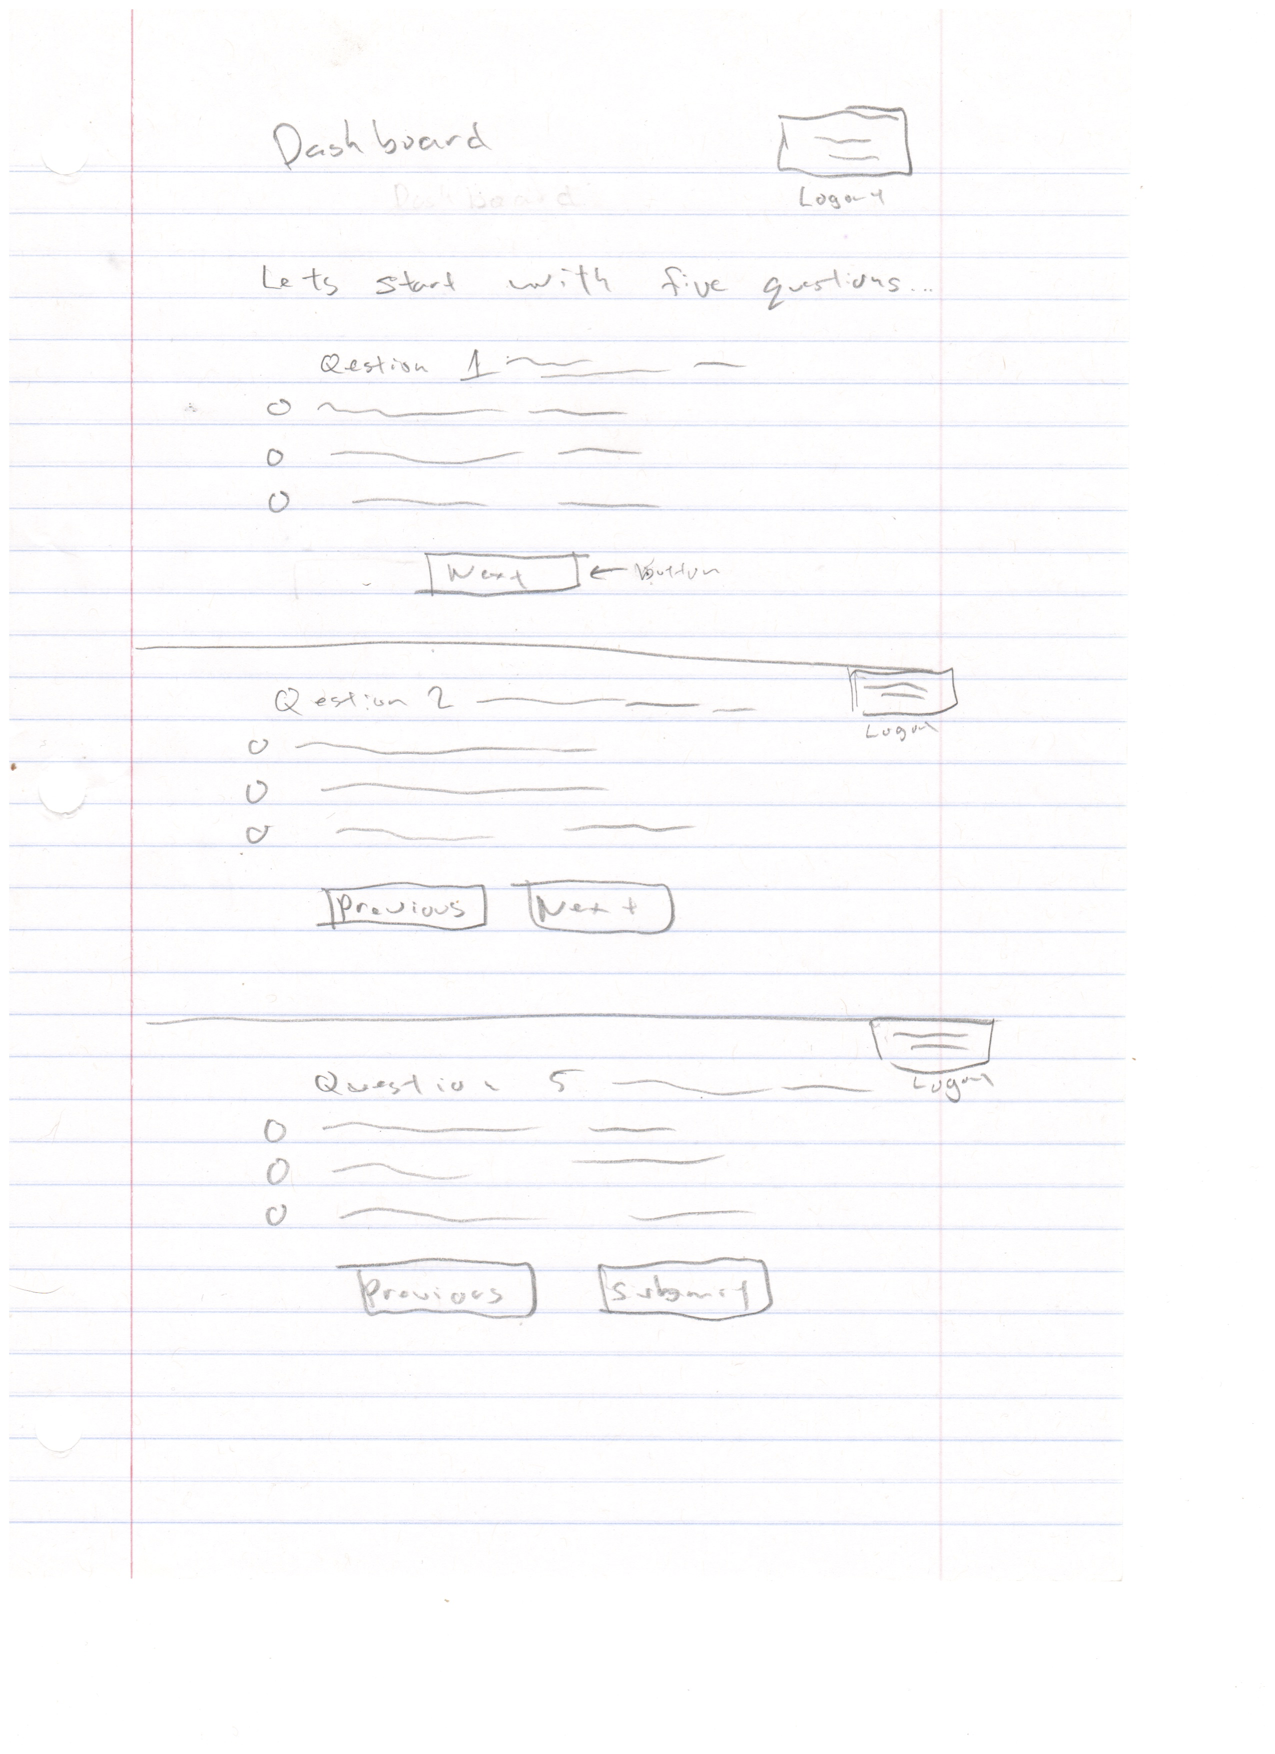 Dashboard
Logout
DashBoard
Lets start with five questions...
Qestion 1
Next ← button
Qestion 2
Logout
Previous Next
Question 5
Logout
Previous Submit